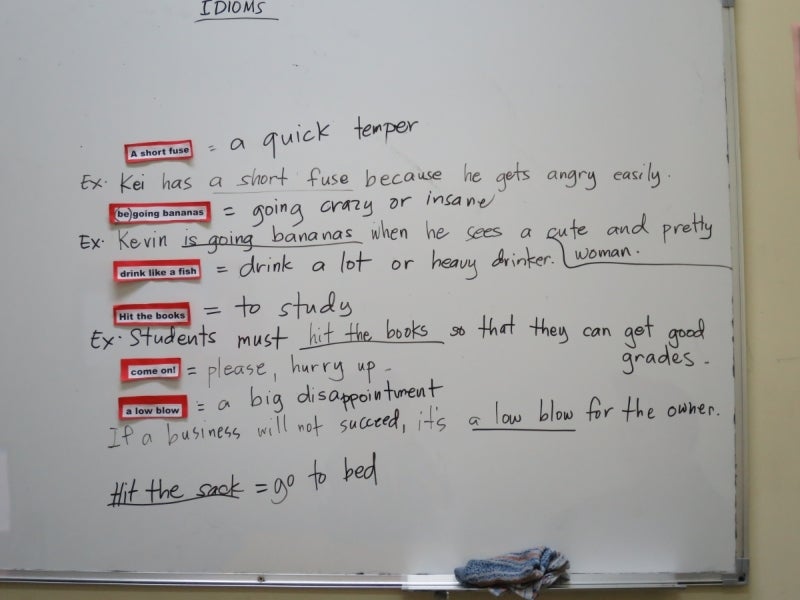 IDIOMS
A short fuse = a quick temper
Ex. Kei has a short fuse because he gets angry easily.
(be)going bananas = going crazy or insane
Ex. Kevin is going bananas when he sees a cute and pretty
woman.
drink like a fish = drink a lot or heavy drinker.
Hit the books = to study
Ex. Students must hit the books so that they can get good
grades.
come on! = please, hurry up.
a low blow = a big disappointment
If a business will not succeed, it's a low blow for the owner.
Hit the sack = go to bed